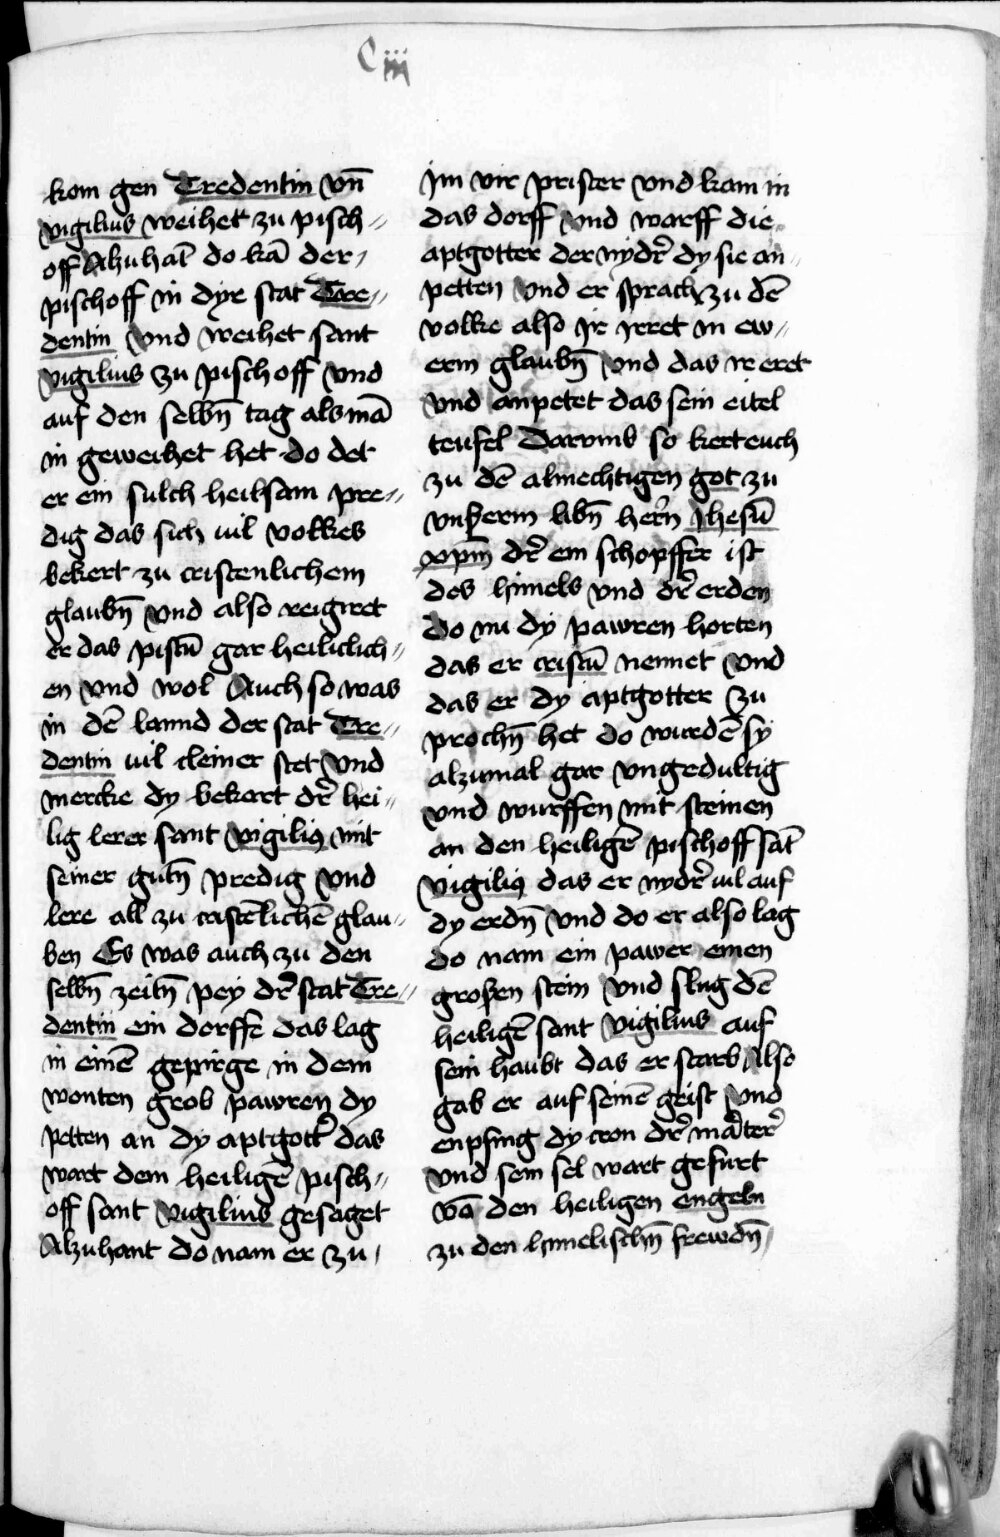 Ciii
kom gen Tredentin vn̄
vigilius weihet zu pisch〃
off Alzuhāt do kā der〃
pischoff in dyre stat Tre〃
dentin vnd weihet sant
vigilius zu pischoff vnd
auf den selbn̄ tag als mā
in geweihet het do det
er ein sulch heilsam pre〃
dig das sich uil volkes
bekert zu cristenlichem
glaubn̄ vnd also reigiret
er das pistū gar heiliclich〃
en vnd wol Auch so was
in dē lannd der stat Tre〃
dentin uil cleiner stet vnd
mercke dy bekart dr̄ hei〃
lig lerer sant vigiliꝰ mit
seiner gutn̄ predig vnd
lere all zu cristēlichē glau〃
ben Es was auch zu den
selbn̄ zeitn̄ pey dr̄ stat Tre〃
dentin ein dorffe das lag
in einē gepirge in dem
wonten grob pawren dy
petten an dy aptgott̄ das
wart dem heiligē pisch〃
off sant vigilius gesaget
Alzuhant do nam er zu
im vir prister vnd kam in
das dorff vnd warff die
aptgotter der nydr̄ dy sie an〃
petten vnd er sprach zu dē
volke also jr jrret in ew〃
erm glaubn̄ vnd das ir eret
vnd anpetet das sein eitel
teufel Darvmb so kert euch
zu dē almechtigen got zu
vnßerm libn̄ her̄n Jhesū
xpm̄ dr̄ ein schopffer ist
des himels vnd dr̄ erden
do nu dy pawren horten
das er cristū nennet vnd
das er dy aptgotter zu
prochn̄ het do wurdē sy
alzumal gar vngedultig
vnd wurffen mit steinen
an den heiligē pischoff sāt
vigiliꝰ das er nydr̄ uil auf
dy erdn̄ vnd do er also lag
do nam ein pawer einen
großen stein vnd slug dē
heiligē sant vigilius auf
sein haubt das er starb Also
gab er auf seinē geist vnd
enpfing dy cron dr̄ mār̄ter̄
vnd sein sel wart gefurt
vō den heiligen engeln
zu den himelischn̄ frewdn̄